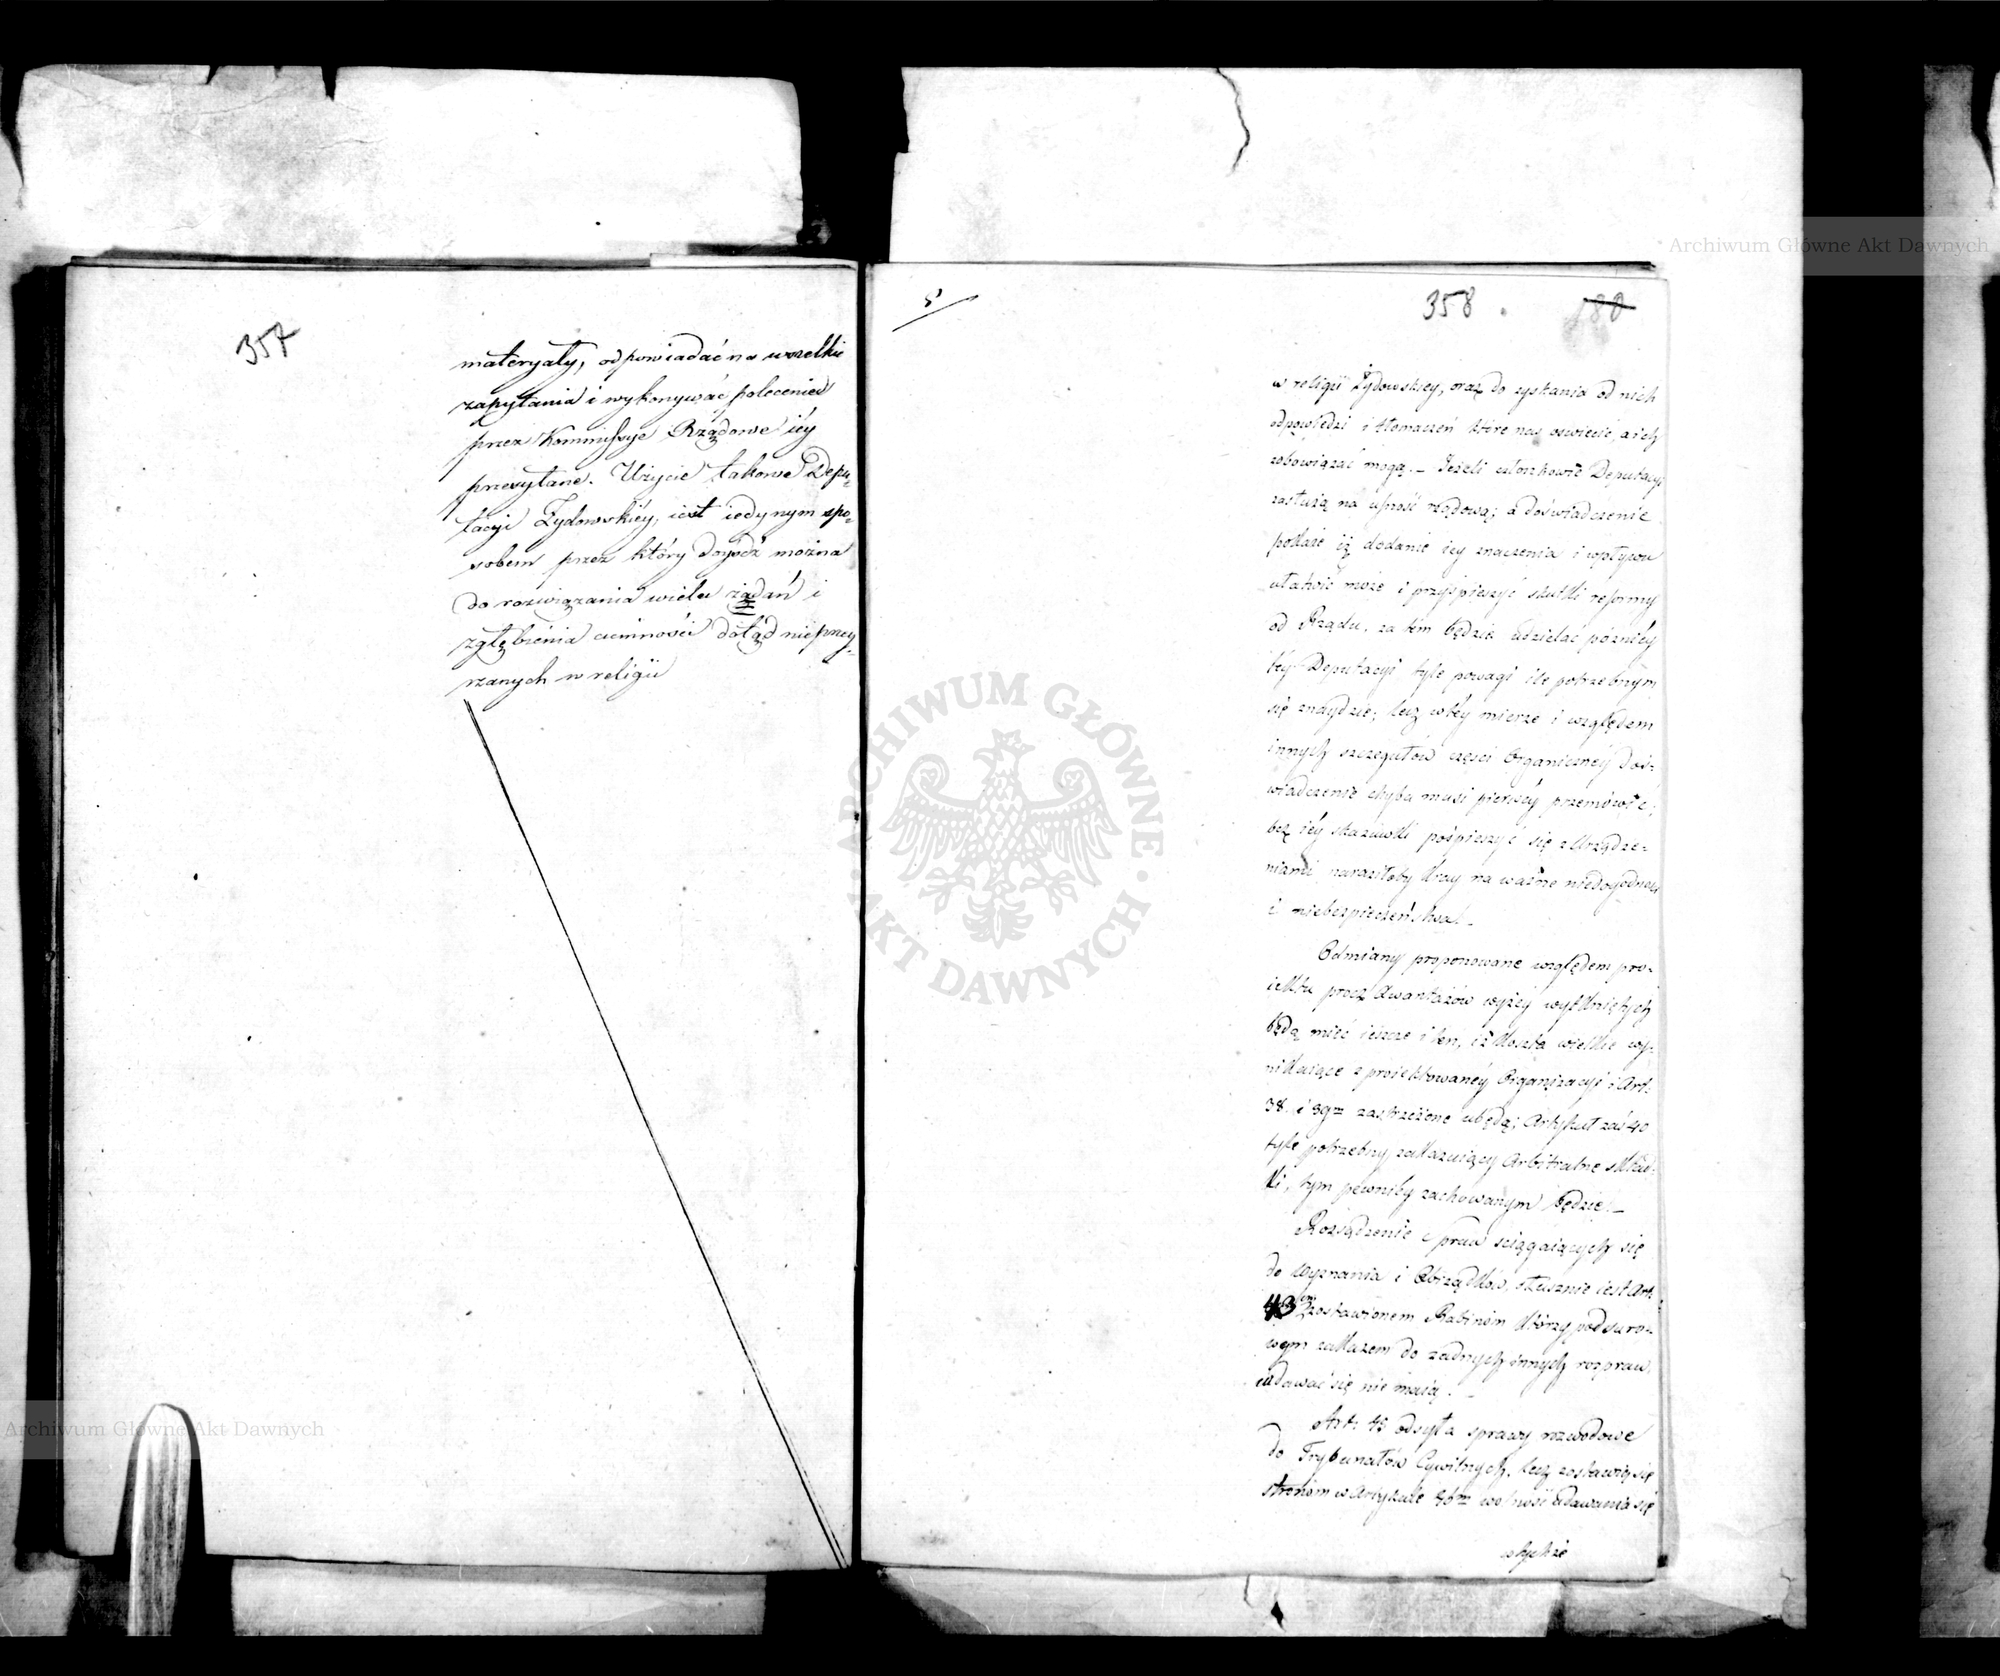 357
materyały, odpowiadać na wszelkie
zapytania i wykonywać polecenia
przez Kommissye Rządowe iéy
przesyłane. Użycie takowe Depu-
tacyi Żydowskiéy, iest iedynym spo-
sobem przez który doyść można
do rozwiązania wielu żądań i
zgłębienia ciemności dotąd nieprzey-
rzanych w religii
5/
358.
180
w religii Żydowskiey, oraz do zyskania od nich
odpowiedzi i tłomaczeń które nas oswiecić, a ich
zobowiązać mogą. – Jeżeli członkowie Deputacyi
zasłużą na ufność rządową; a doświadczenie
pokaże iż dodanie iey znaczenia i wpływu
ułatwić może i przyśpieszyć skutki reformy
od Rządu, za tem będzie udzielać późniéy
téy Deputacyi tyle powagi ile potrzebnym
się znaydzie; lecz w téy mierze i względem
innych szczegułów części Organicznéy doś-
wiadczenie chyba musi pierwéy przemówić;
bez iéy skazówki pośpieszyć się z Urządze-
niami naraziłoby Kray na ważne niedogodności
i niebezpieczeństwa. –
Odmiany proponowane względem pro-
iektu prócz Awantażów wyżéy wytkniętych
będą mieć ieszcze i ten, iż koszta wielkie wy-
nikaiące z proiektowanéy Organizacyi i Art:
38. i 39m zastrzeżone ubędą; Artykuł zaś 40
tyle potrzebny zakazuiący Arbitralne skład-
ki, tym pewniéy zachowanym będzie. –
Rozsądzenie spraw ściągaiących się
do Wyznania i Obrządków, słusznie iest Art:
43m zostawionem Rabinom którzy pod suro-
wym zakazem do żadnych innych rozpraw
wdawać się nie maią. –
Art: 45 odsyła sprawy rozwodowe
do Trybunałów Cywilnych, lecz zostawia się
stronom w Artykule 46m wolność udawania się
także
Archiwum Główne Akt Dawnych
ARCHIWUM GŁÓWNE
AKT DAWNYCH
Archiwum Główne Akt Dawnych